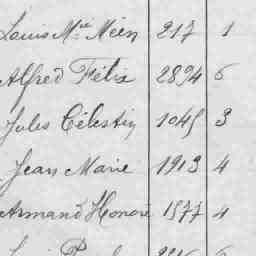 Louis M.ie Méen 217 1
Alfred Félix 2894 6
Jules Célestin 1045 3
Jean Marie 1913 4
Armand Honoré 1577 4